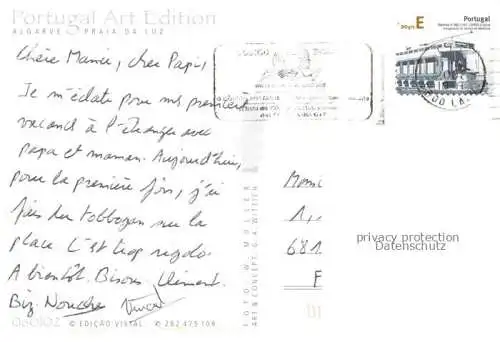 Portugal Art Edition
ALGARVE PRAIA DA LUZ
Chère Mamie, cher Papi,
Je m'éclate pour mes premières
vacances à l'étranger avec
papa et maman. Aujourd'hui,
pour la première fois, j'ai
fait du tobbogan sur la
place. C'est trop rigolo.
A bientôt. Bisous Clément.
Biz.
060102
© EDIÇÃO VISTAL
282 475 108
FOTO W. MÜLLER
ART & CONCEPT: G.A. WITTICH
Portugal
E
1,
681
F
privacy protection
Datenschutz